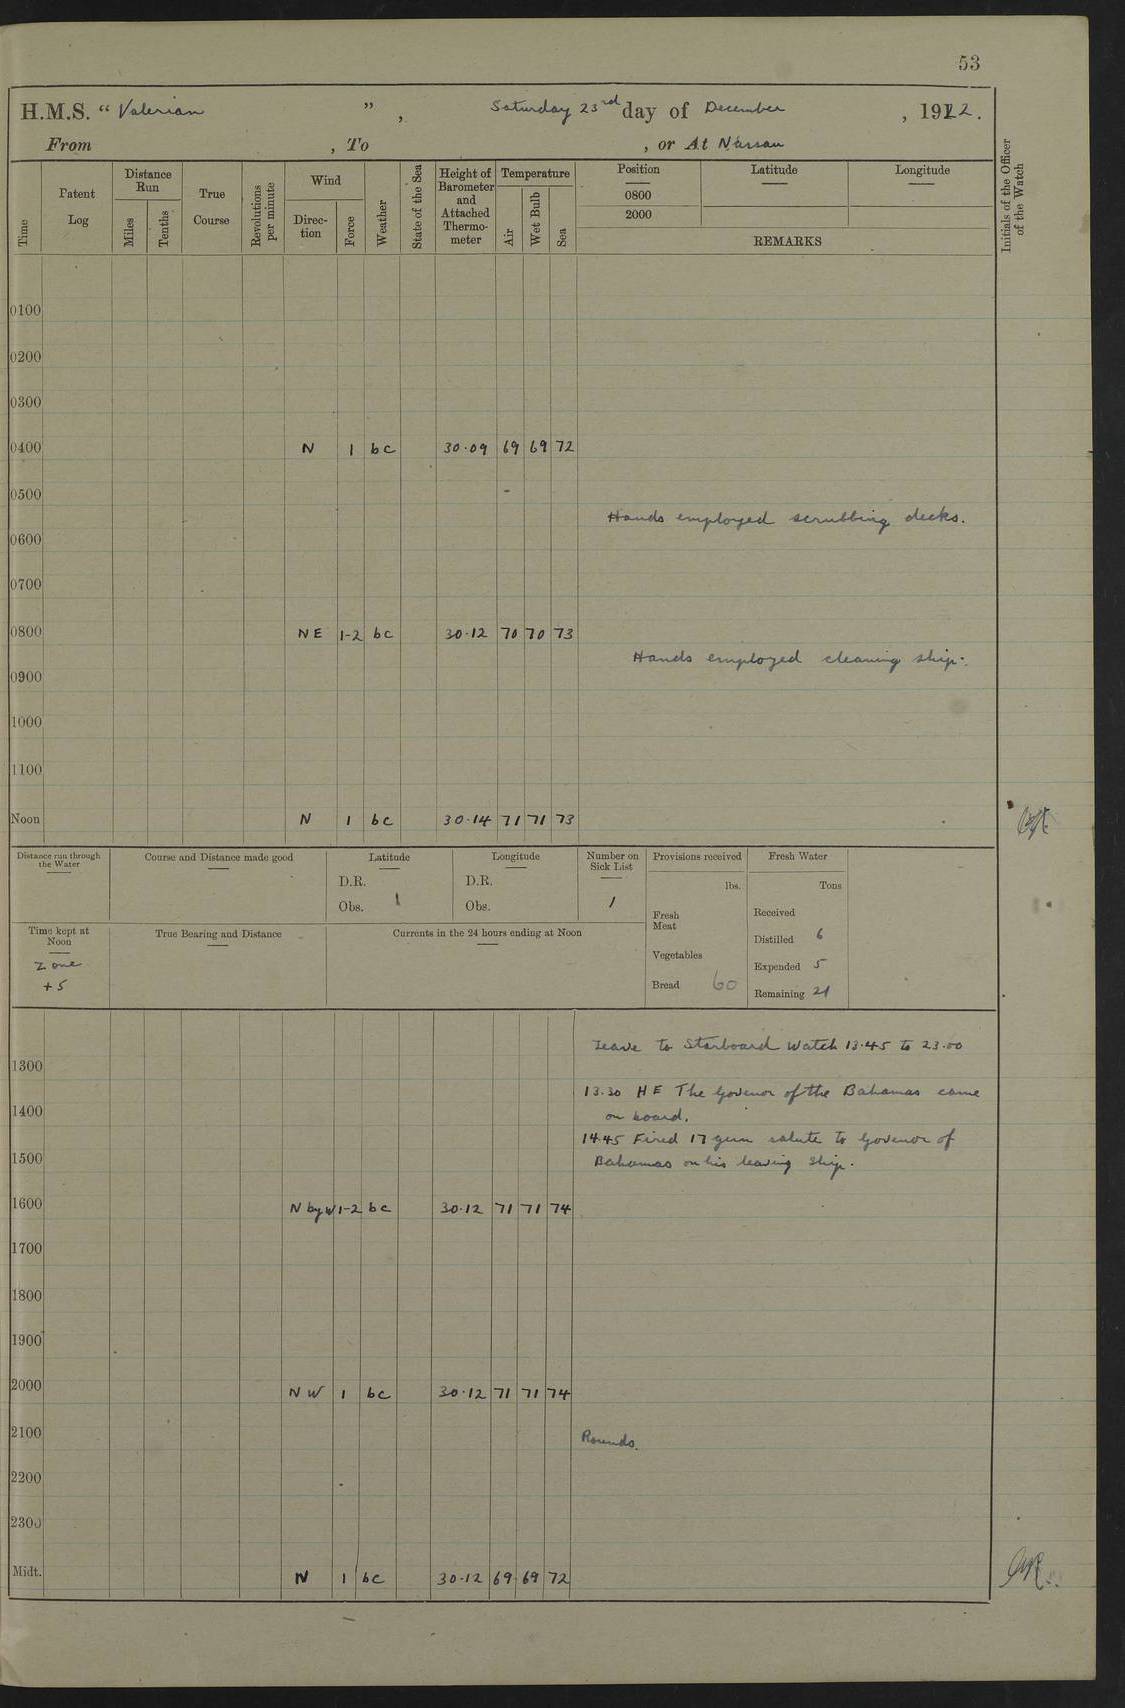 53
H.M.S. " Valerian " , Saturday 23rd day of December , 1922.
From , To , or At Nassau
Time
Patent Log
Distance Run
Miles
Tenths
True Course
Revolutions per minute
Wind
Direc-tion
Force
Weather
State of the Sea
Height of Barometer and Attached Thermo-meter
Temperature
Air
Wet Bulb
Sea
Position
0800
2000
Latitude
Longitude
REMARKS
Initials of the Officer of the Watch
0100
0200
0300
0400 N 1 bc 30.09 69 69 72
0500
Hands employed scrubbing decks.
0600
0700
0800 NE 1-2 bc 30.12 70 70 73
Hands employed cleaning ship.
0900
1000
1100
Noon N 1 bc 30.14 71 71 73
Distance run through the Water
Course and Distance made good
Latitude
D.R.
Obs.
Longitude
D.R.
Obs.
Number on Sick List
1
Provisions received
lbs.
Fresh Meat
Vegetables
Bread 60
Fresh Water
Tons
Received
Distilled 6
Expended 5
Remaining 21
Time kept at Noon
Zone
+5
True Bearing and Distance
Currents in the 24 hours ending at Noon
Leave to Starboard Watch 13.45 to 23.00
1300
13.30 HE The Govenor of the Bahamas came
1400
on board.
14.45 Fired 17 gun salute to Govenor of
1500
Bahamas on his leaving ship.
1600 N by W 1-2 bc 30.12 71 71 74
1700
1800
1900
2000 NW 1 bc 30.12 71 71 74
2100
Rounds.
2200
2300
Midt. N 1 bc 30.12 69 69 72